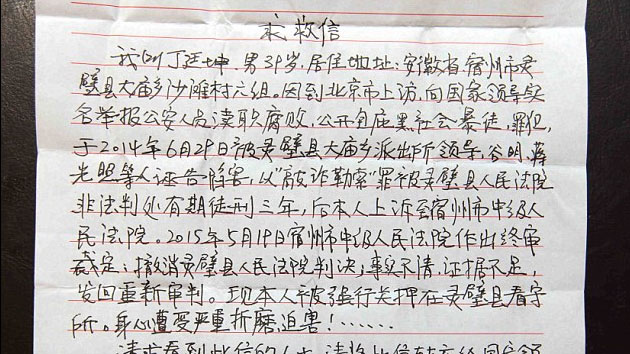 求救信
我叫丁廷坤 男39岁,居住地址:安徽省宿州市灵
璧县大庙乡沙滩村六组。因到北京市上访,向国家领导实
名举报公安人员渎职腐败,公开包庇黑社会暴徒,罪犯,
于2014年6月29日被灵璧县大庙乡派出所领导,谷明,蒋
光照等人诬告陷害,以"敲诈勒索"罪被灵璧县人民法院
非法判处有期徒刑三年,后本人上诉至宿州市中级人
民法院。2015年5月19日宿州市中级人民法院作出终审
裁定:撤消灵璧县人民法院判决,事实不清,证据不足,
发回重新审判。现本人被强行关押在灵璧县看守
所。身心遭受严重折磨迫害!……
请求看到此信的人士,请将此信转交给国家领